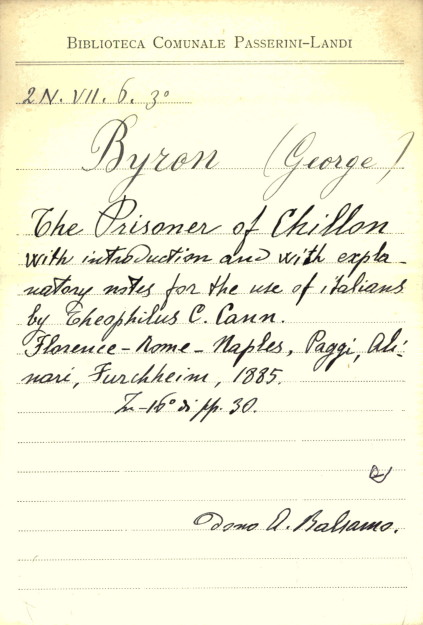 BIBLIOTECA COMUNALE PASSERINI-LANDI
2 N. VII. 6. 3º
Byron (George)
The Prisoner of Chillon
with introduction and with expla-
natory notes for the use of italians
by Theophilus C. Cann.
Florence - Rome - Naples, Paggi, Ali-
nari, Furchheim, 1885.
In-16º di pp. 30.
Dono A. Balsamo.